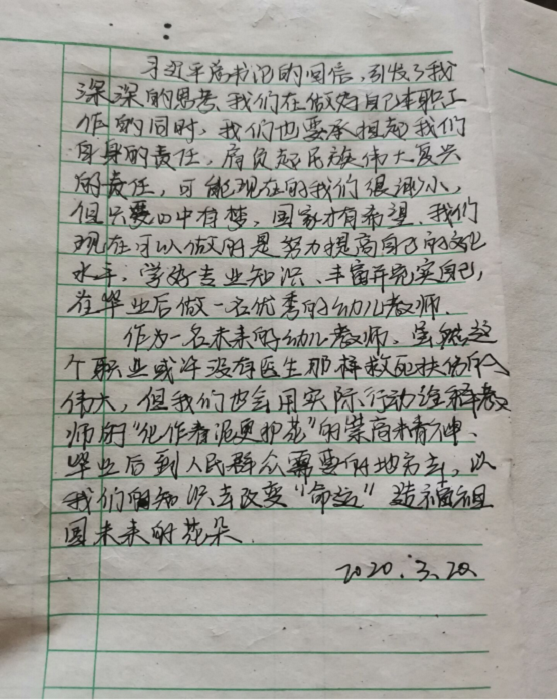 习近平总书记的回信，引发了我
深深的思考、我们在做好自己本职工
作的同时，我们也要承担起我们
自身的责任，肩负起民族伟大复兴
的责任，可能现在的我们很渺小，
但只要心中有梦，国家才有希望、我们
现在可以做的是努力提高自己的文化
水平；学好专业知识、丰富并充实自己，
在毕业后做一名优秀的幼儿教师.
作为一名未来的幼儿教师、虽然这
个职业或许没有医生那样救死扶伤的
伟大，但我们也会用实际行动诠释教
师的“化作春泥更护花”的崇高精神、
毕业后到人民群众需要的地方去，以
我们的知识去改变“命运”造福祖
国未来的花朵.
2020.3.20.